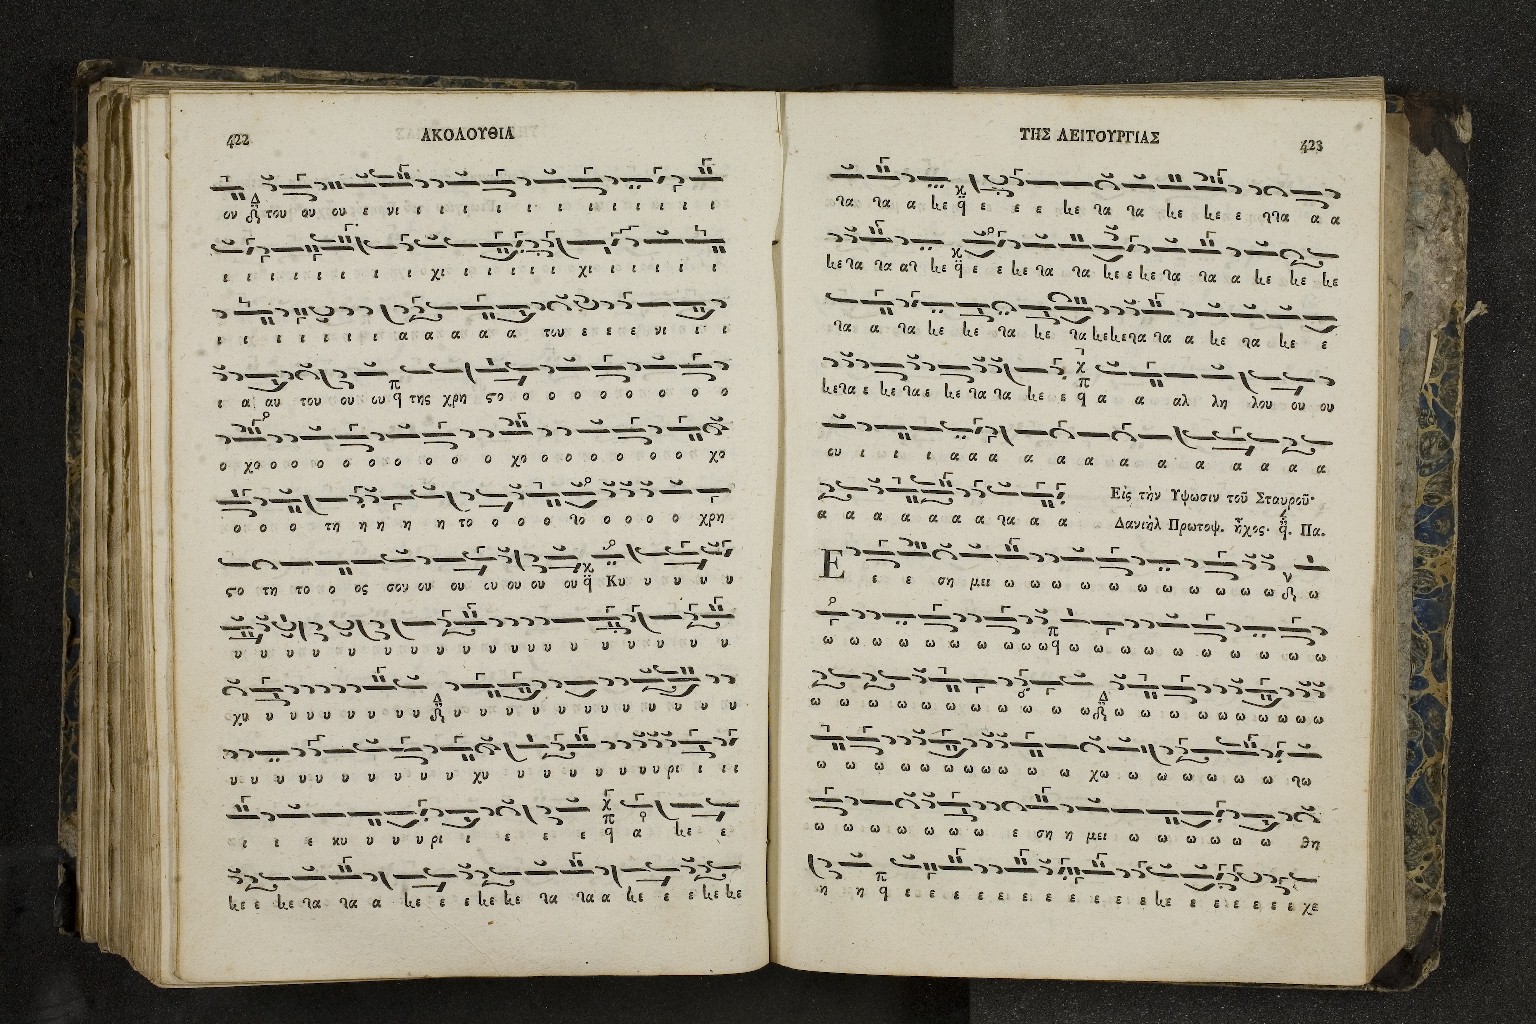 422
ΑΚΟΛΟΥΘΙΑ
ου του ου ου ε νι ι ι ι ι ι ι ι ι ι ι ι ι
ι ι ι ι ι ι χι ι ι ι ι ι χι ι ι ι ι ι
ι ι ι ι ι ι ι α α α α α α του ε ε ε νι ι ι
ι α αυ του ου ου της χρη ϛο ο ο ο ο ο ο ο ο
ο χο ο ο ο ο ο ο ο ο ο ο χο ο ο ο ο ο ο ο χο
ο ο ο τη η η η η το ο ο ο το ο ο ο ο χρη
ϛο τη το ο ος σου ου ου ου ου ου ου Κυ υ υ υ υ
υ υ υ υ υ υ υ υ υ υ υ υ υ υ υ υ υ υ υ
χυ υ υ υ υ υ υ υ υ υ υ υ υ υ υ υ υ υ υ υ
υ υ υ υ υ υ υ υ υ υ χυ υ υ υ υ υ υ υ ρι ι ι ι
ι ι ε κυ υ υ υ ρι ι ε ε ε α κε ε
κε ε κε τα τα α κε ε ε κε κε τα τα α κε ε ε κε κε
ΤΗΣ ΛΕΙΤΟΥΡΓΙΑΣ
423
τα τα α κε ε ε ε κε τα τα κε κε ε τα α α
κε τα τα ατ κε ε ε κε τα τα κε ε κε τα τα α κε κε κε
τα α τα κε κε τα κε τα κε κε τα τα α κε τα κε ε
κε τα ε κε τα ε κε τα τα κε ε α α αλ λη λου ου ου
ου ι ι ι α α α α α α α α α α α α α
α α α α α α α α τα α α
Εἰς τὴν Υψωσιν τοῦ Σταυροῦ·
Δανιὴλ Πρωτοψ. ἦχος. Πα.
Ε ε ε ση μει ω ω ω ω ω ω ω ω ω ω ω ω
ω ω ω ω ω ω ω ω ω ω ω ω ω ω ω ω ω ω ω
ω ω ω ω ω ω ω ω ω ω ω ω ω ω ω ω ω ω ω ω
ω ω ω ω ω ω ω ω ω ω ω χω ω ω ω ω ω ω τω
ω ω ω ω ω ω ω ε ση η μει ω ω ω ω ω ω θη
η η ε ε ε ε ε ε ε ε ε ε ε κε ε ε ε ε ε ε χε